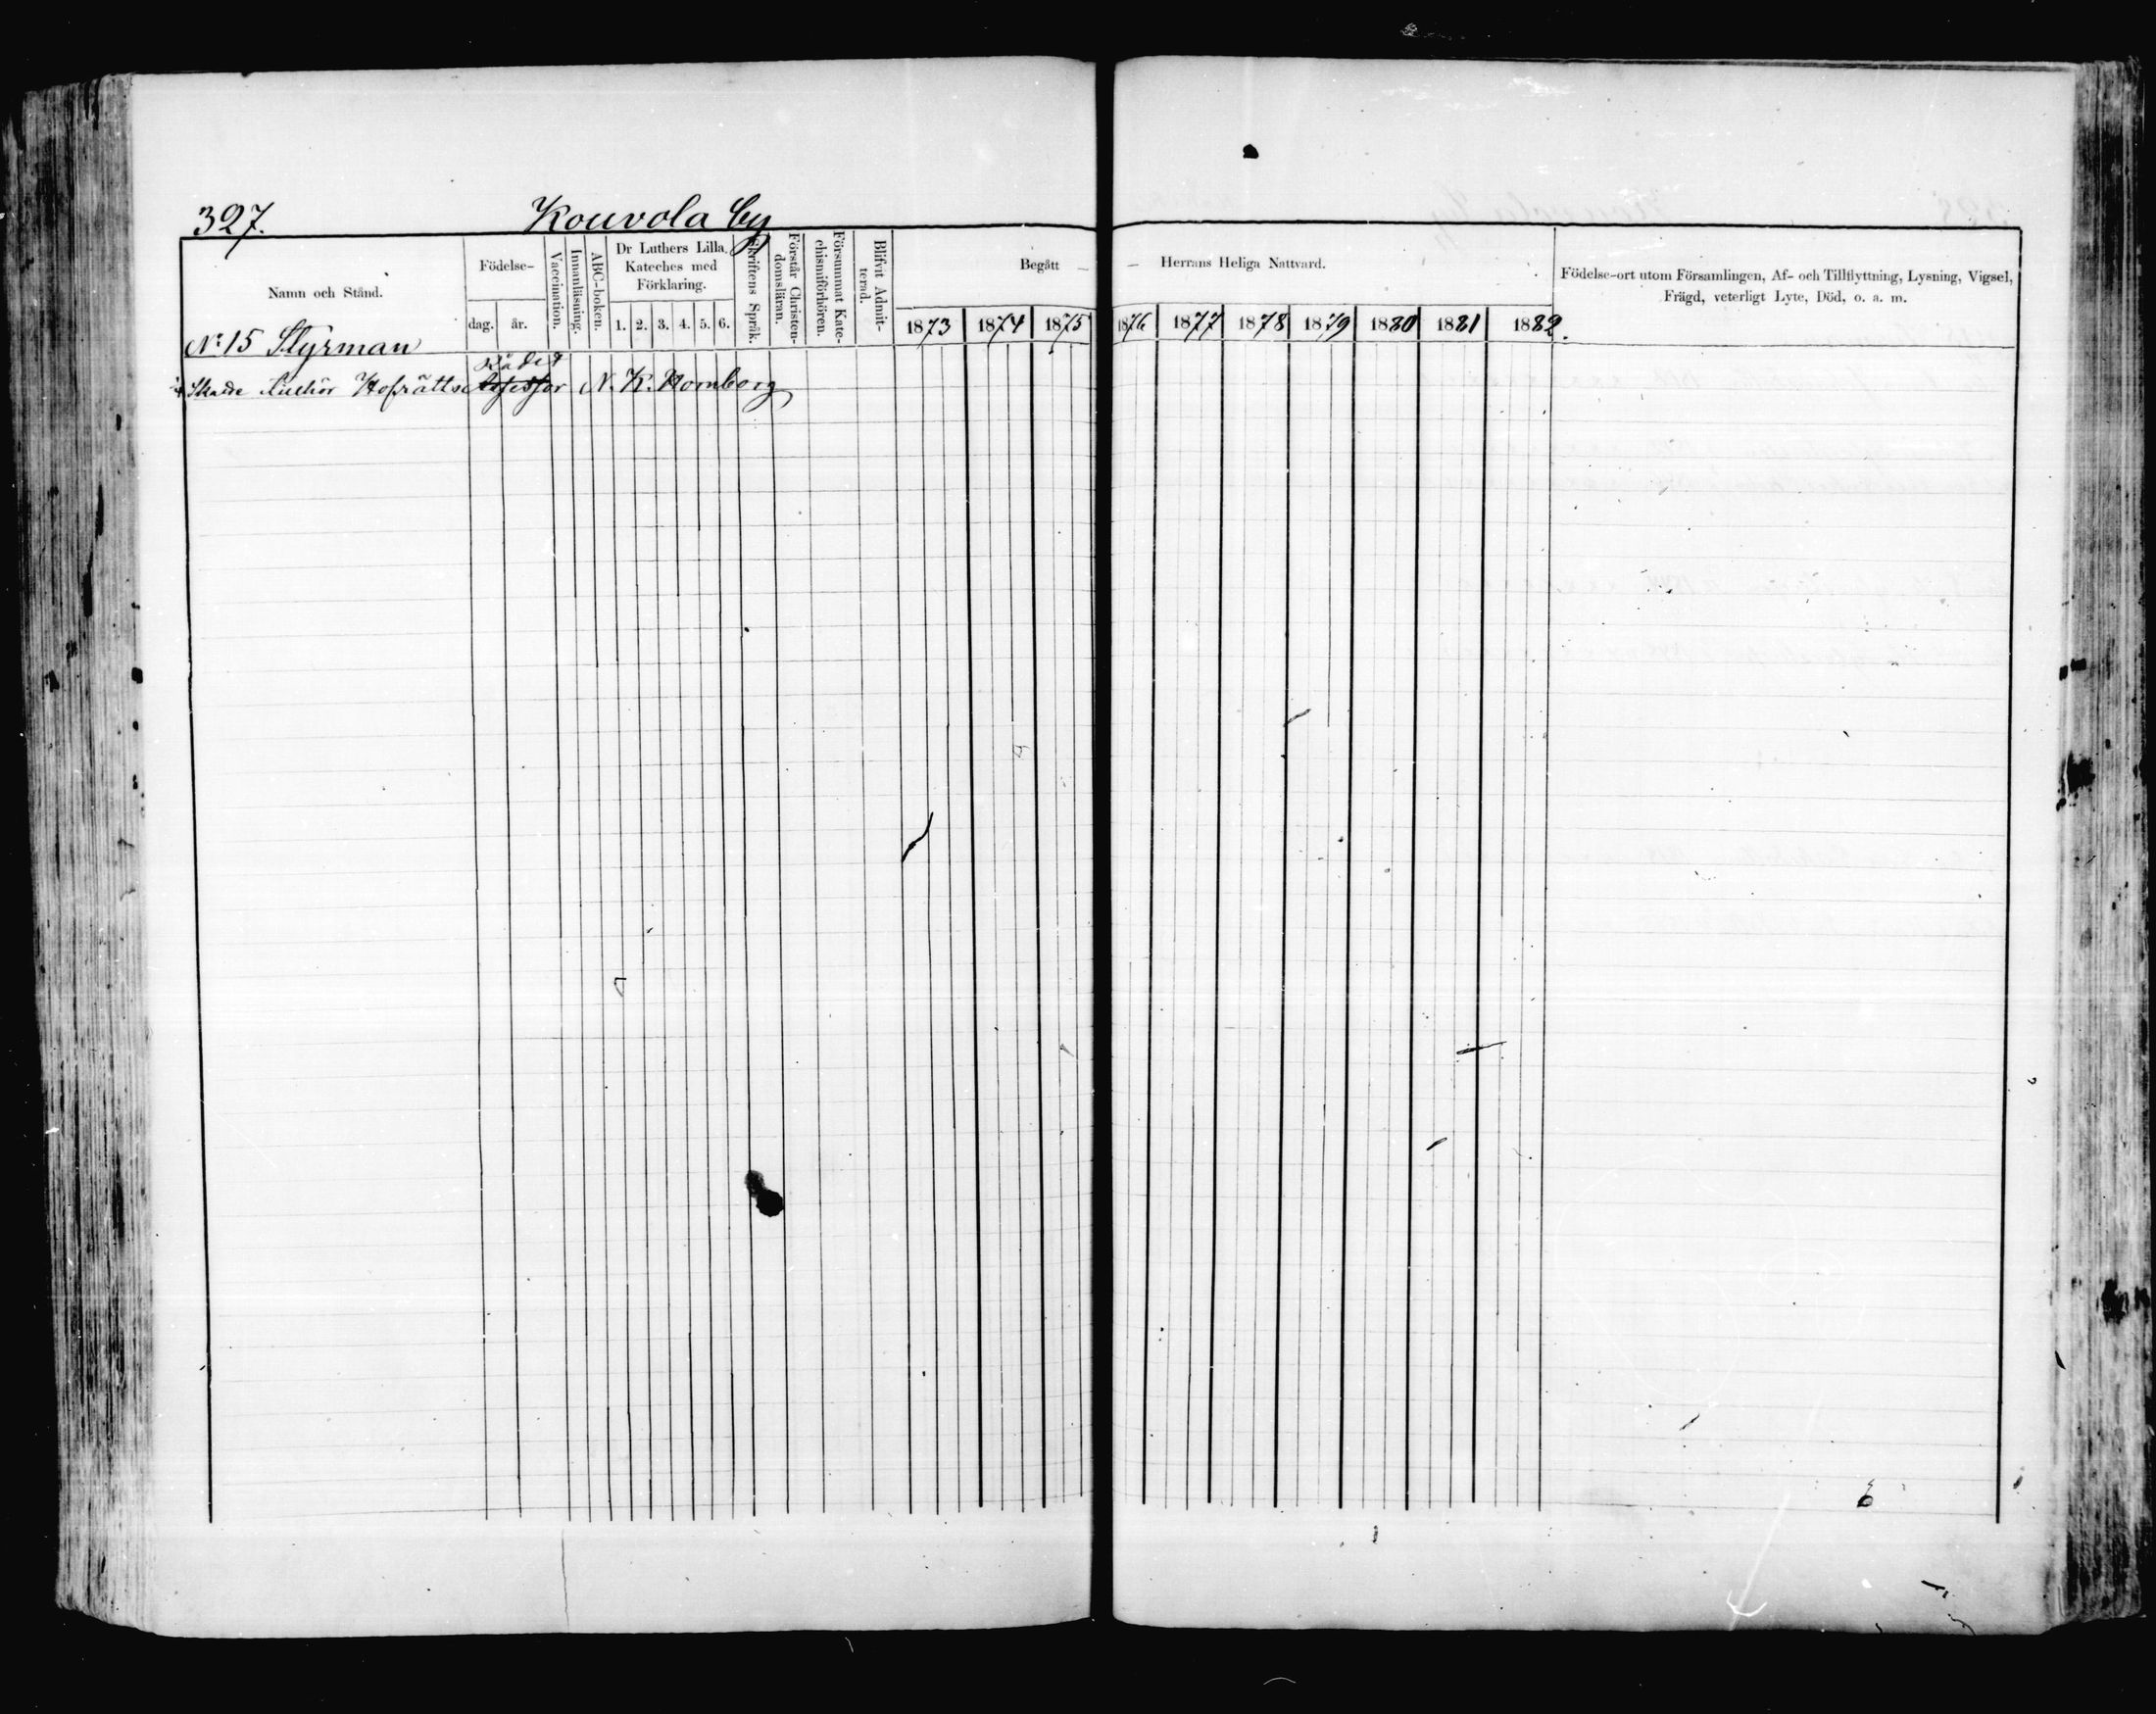 327. Kouvola by
Namn och Stånd.
Födelse-
dag. år.
Vaccination.
Innanläsning.
ABC-boken.
Dr Luthers Lilla
Kateches med
Förklaring.
1. 2. 3. 4. 5. 6.
Skriftens Språk.
Förstår Christen-
domsläran.
Försummat Kate-
chismiförhören.
Blifvit Admit-
terad.
Begått — — Herrans Heliga Nattvard.
1873 1874 1875 1876 1877 1878 1879 1880 1881 1882.
Födelse-ort utom Församlingen, Af- och Tillflyttning, Lysning, Vigsel,
Frägd, veterligt Lyte, Död, o. a. m.
No 15 Styrman
Rådet
½ Skalde tillhör Hofrätts Assessor N. K. Hornborg